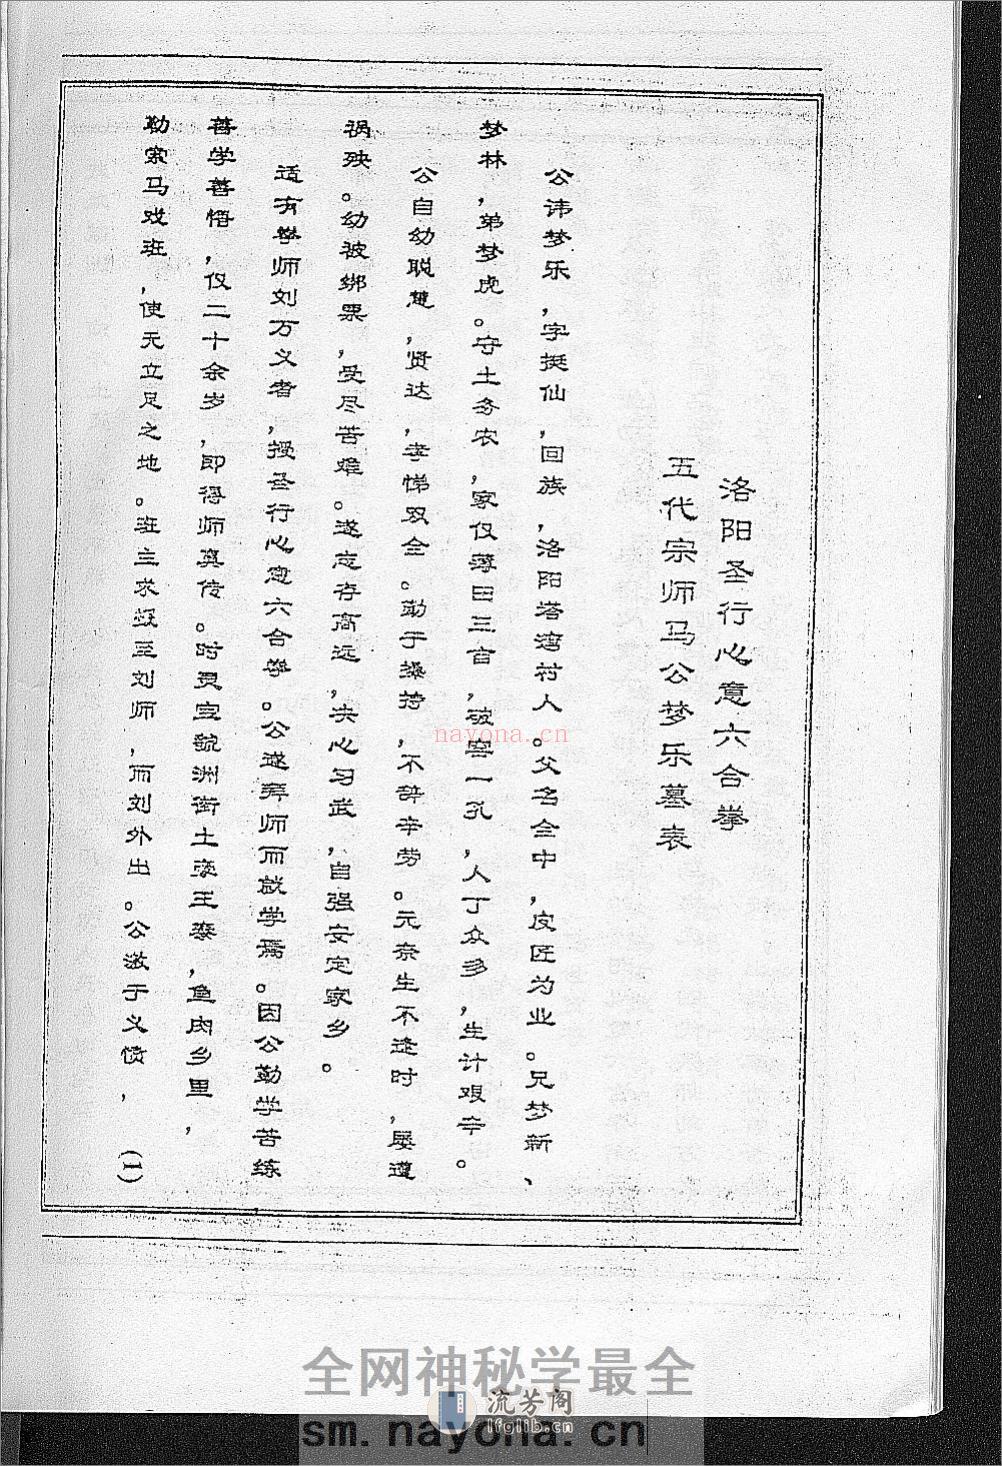 洛阳圣行心意六合拳
五代宗师马公梦乐墓表
公讳梦乐，字挺仙，回族，洛阳塔湾村人。父名全中，皮匠为业。兄梦新、
梦林，弟梦虎。守土务农，家仅薄田三亩，破窑一孔，人丁众多，生计艰辛。
公自幼聪慧，贤达，孝悌双全。勤于操持，不辞辛劳。无奈生不逢时，屡遭
祸殃。幼被绑票，受尽苦难。遂志存高远，决心习武，自强安定家乡。
适有拳师刘万义者，授圣行心意六合拳。公遂拜师而就学焉。因公勤学苦练
善学善悟，仅二十余岁，即得师真传。时灵宝虢洲街土豪王泰，鱼肉乡里，
勒索马戏班，使无立足之地。班主求援至刘师，而刘外出。公激于义愤，
(1)
nayona.cn
全网神秘学最全
流芳阁
lfglib.cn
sm.nayona.cn